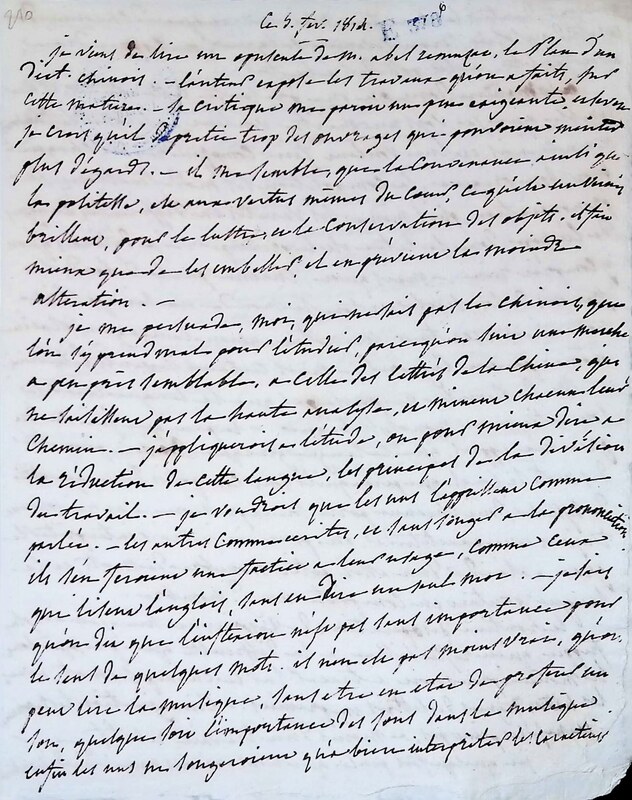 210
Ce 5. fev. 1814. E 378 6
je viens de lire un opuscule de m. abel remusat, le plan d'un
dict. chinois. — l'auteur expose les travaux qu'on a faits, sur
cette matiere. — sa critique me paroit un peu exigeante, et
je crois qu'il deprecie trop des ouvrages qui pouvoient meriter
plus d'égards. — il me semble, que la convenance ainsi que
la politesse, est aux vertus mêmes du coeur, ce qu'est un vernis
brillant, pour le lustre, et la conservation des objets. il fait
mieux que de les embellir, il en prévient la moindre
alteration. —
je me persuade, moi, qui ne sait pas le chinois, que
l'on s'y prend mal pour l'étudier, parcequ'on suit une marche
a peu près semblable, a celle des lettrés de la Chine, qui
ne saisissent pas la haute analyse, et minent chacun leur
chemin. — j'appliquerois a l'étude, ou pour mieux dire a
la réduction de cette langue, les principes de la division
du travail. — je voudrois que les uns l'apprissent comme
parlée. — les autres comme ecrite, et sans songer a la prononciation
ils s'en feroient une a leur usage, comme ceux
qui lisent l'anglois, sans en dire un seul mot. — je sais
qu'on dit que l'inflexion n'est pas sans importance pour
le sens de quelques mots. il n'en est pas moins vrai, qu'on
peut lire la musique, sans etre en etat de proferer un
son, quelque soit l'importance des sons dans la musique
enfin les uns ne songeroient qu'a bien interpréter les caractères